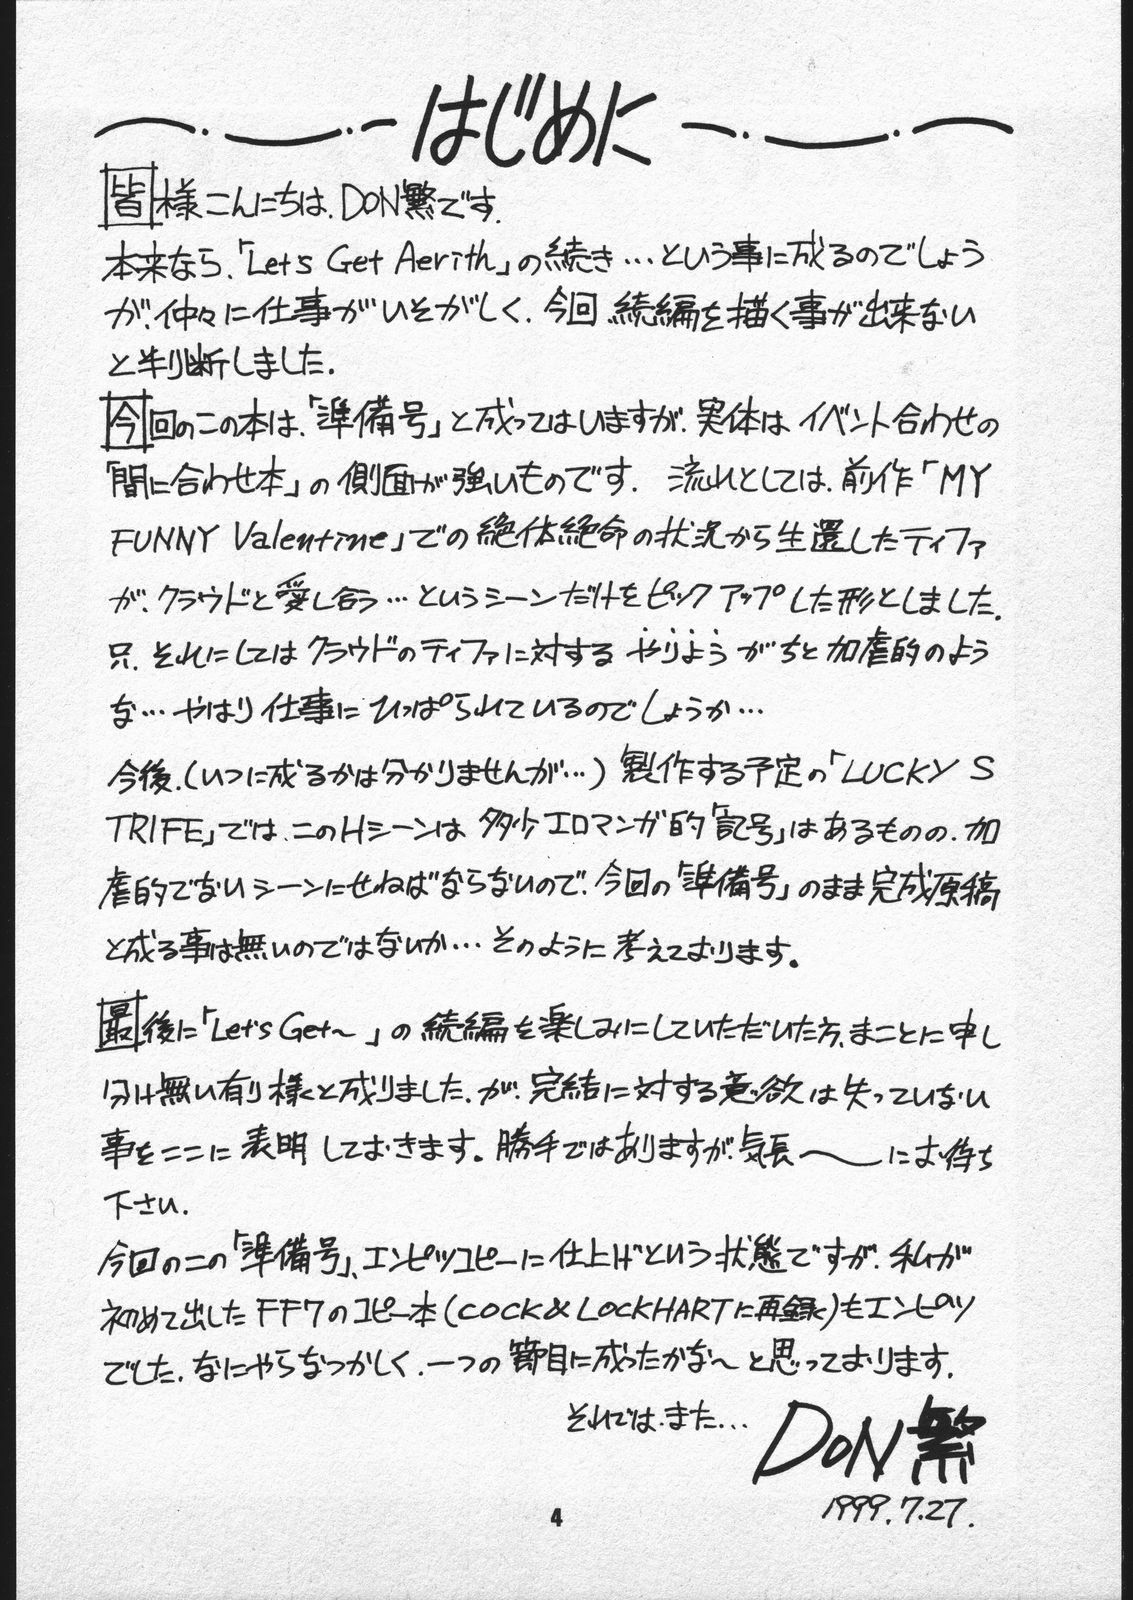 はじめに
皆様こんにちは、DON繁です。
本来なら、「Let's Get Aerith」の続き…という事に成るのでしょう
が、仲々に仕事がいそがしく、今回、続編を描く事が出来ない
と判断しました。
今回のこの本は、「準備号」と成ってはいますが、実体はイベント合わせの
「間に合わせ本」の側面が強いものです。流れとしては、前作「MY
FUNNY Valentine」での絶体絶命の状況から生還したティファ
が、クラウドと愛し合う…というシーンだけをピックアップした形としました。
只、それにしてはクラウドのティファに対するやりようがちと加虐的のよう
な…やはり仕事にひっぱられているのでしょうか…
今後、(いつに成るかは分かりませんが…)製作する予定の「LUCKY S
TRIFE」では、このHシーンは多少エロマンガ的「記号」はあるものの、加
虐的でないシーンにせねばならないので、今回の「準備号」のまま完成原稿
と成る事は無いのではないか…そのように考えております。
最後に「Let's Get〜」の続編を楽しみにしていただいた方、まことに申し
分け無い有り様と成りました、が、完結に対する意欲は失っていない
事をここに表明しておきます。勝手ではありますが、気長〜にお待ち
下さい。
今回のこの「準備号」、エンピツコピーに仕上げという状態ですが、私が
初めて出したFF7のコピー本(COCK&LOCKHARTに再録)もエンピツ
でした、なにやらなつかしく、一つの節目に成ったかな〜と思っております。
それでは、また...
DON繁
1999.7.27.
4